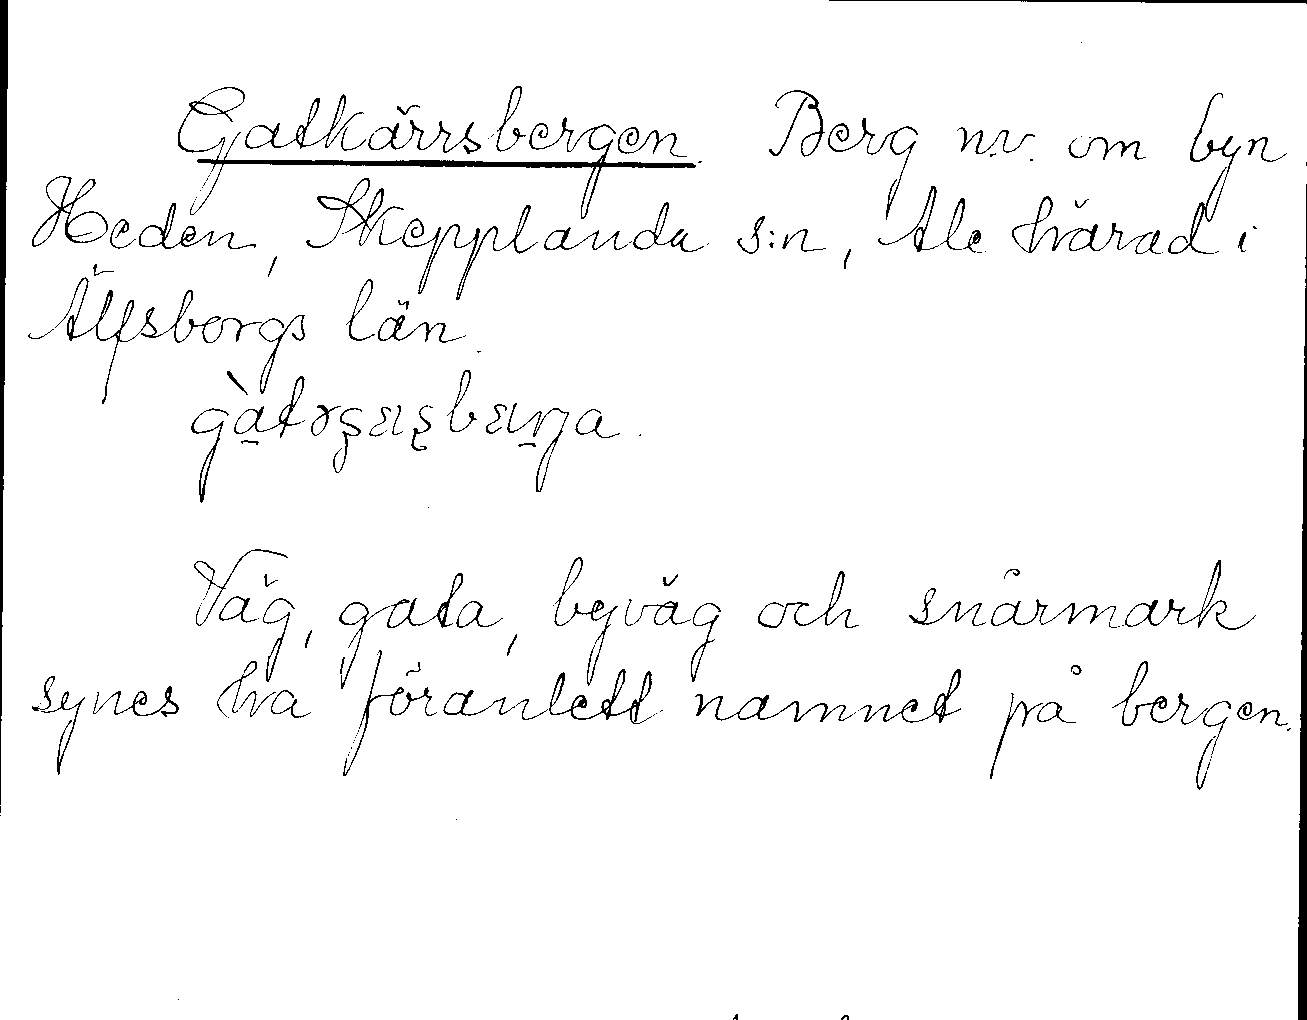 Gatkärrsbergen. Berg n.v. om byn
Heden, Skepplanda s:n, Ale härad i
Älfsborgs län.
Väg, gata, byväg och snårmark
synes ha föranlett namnet på bergen.